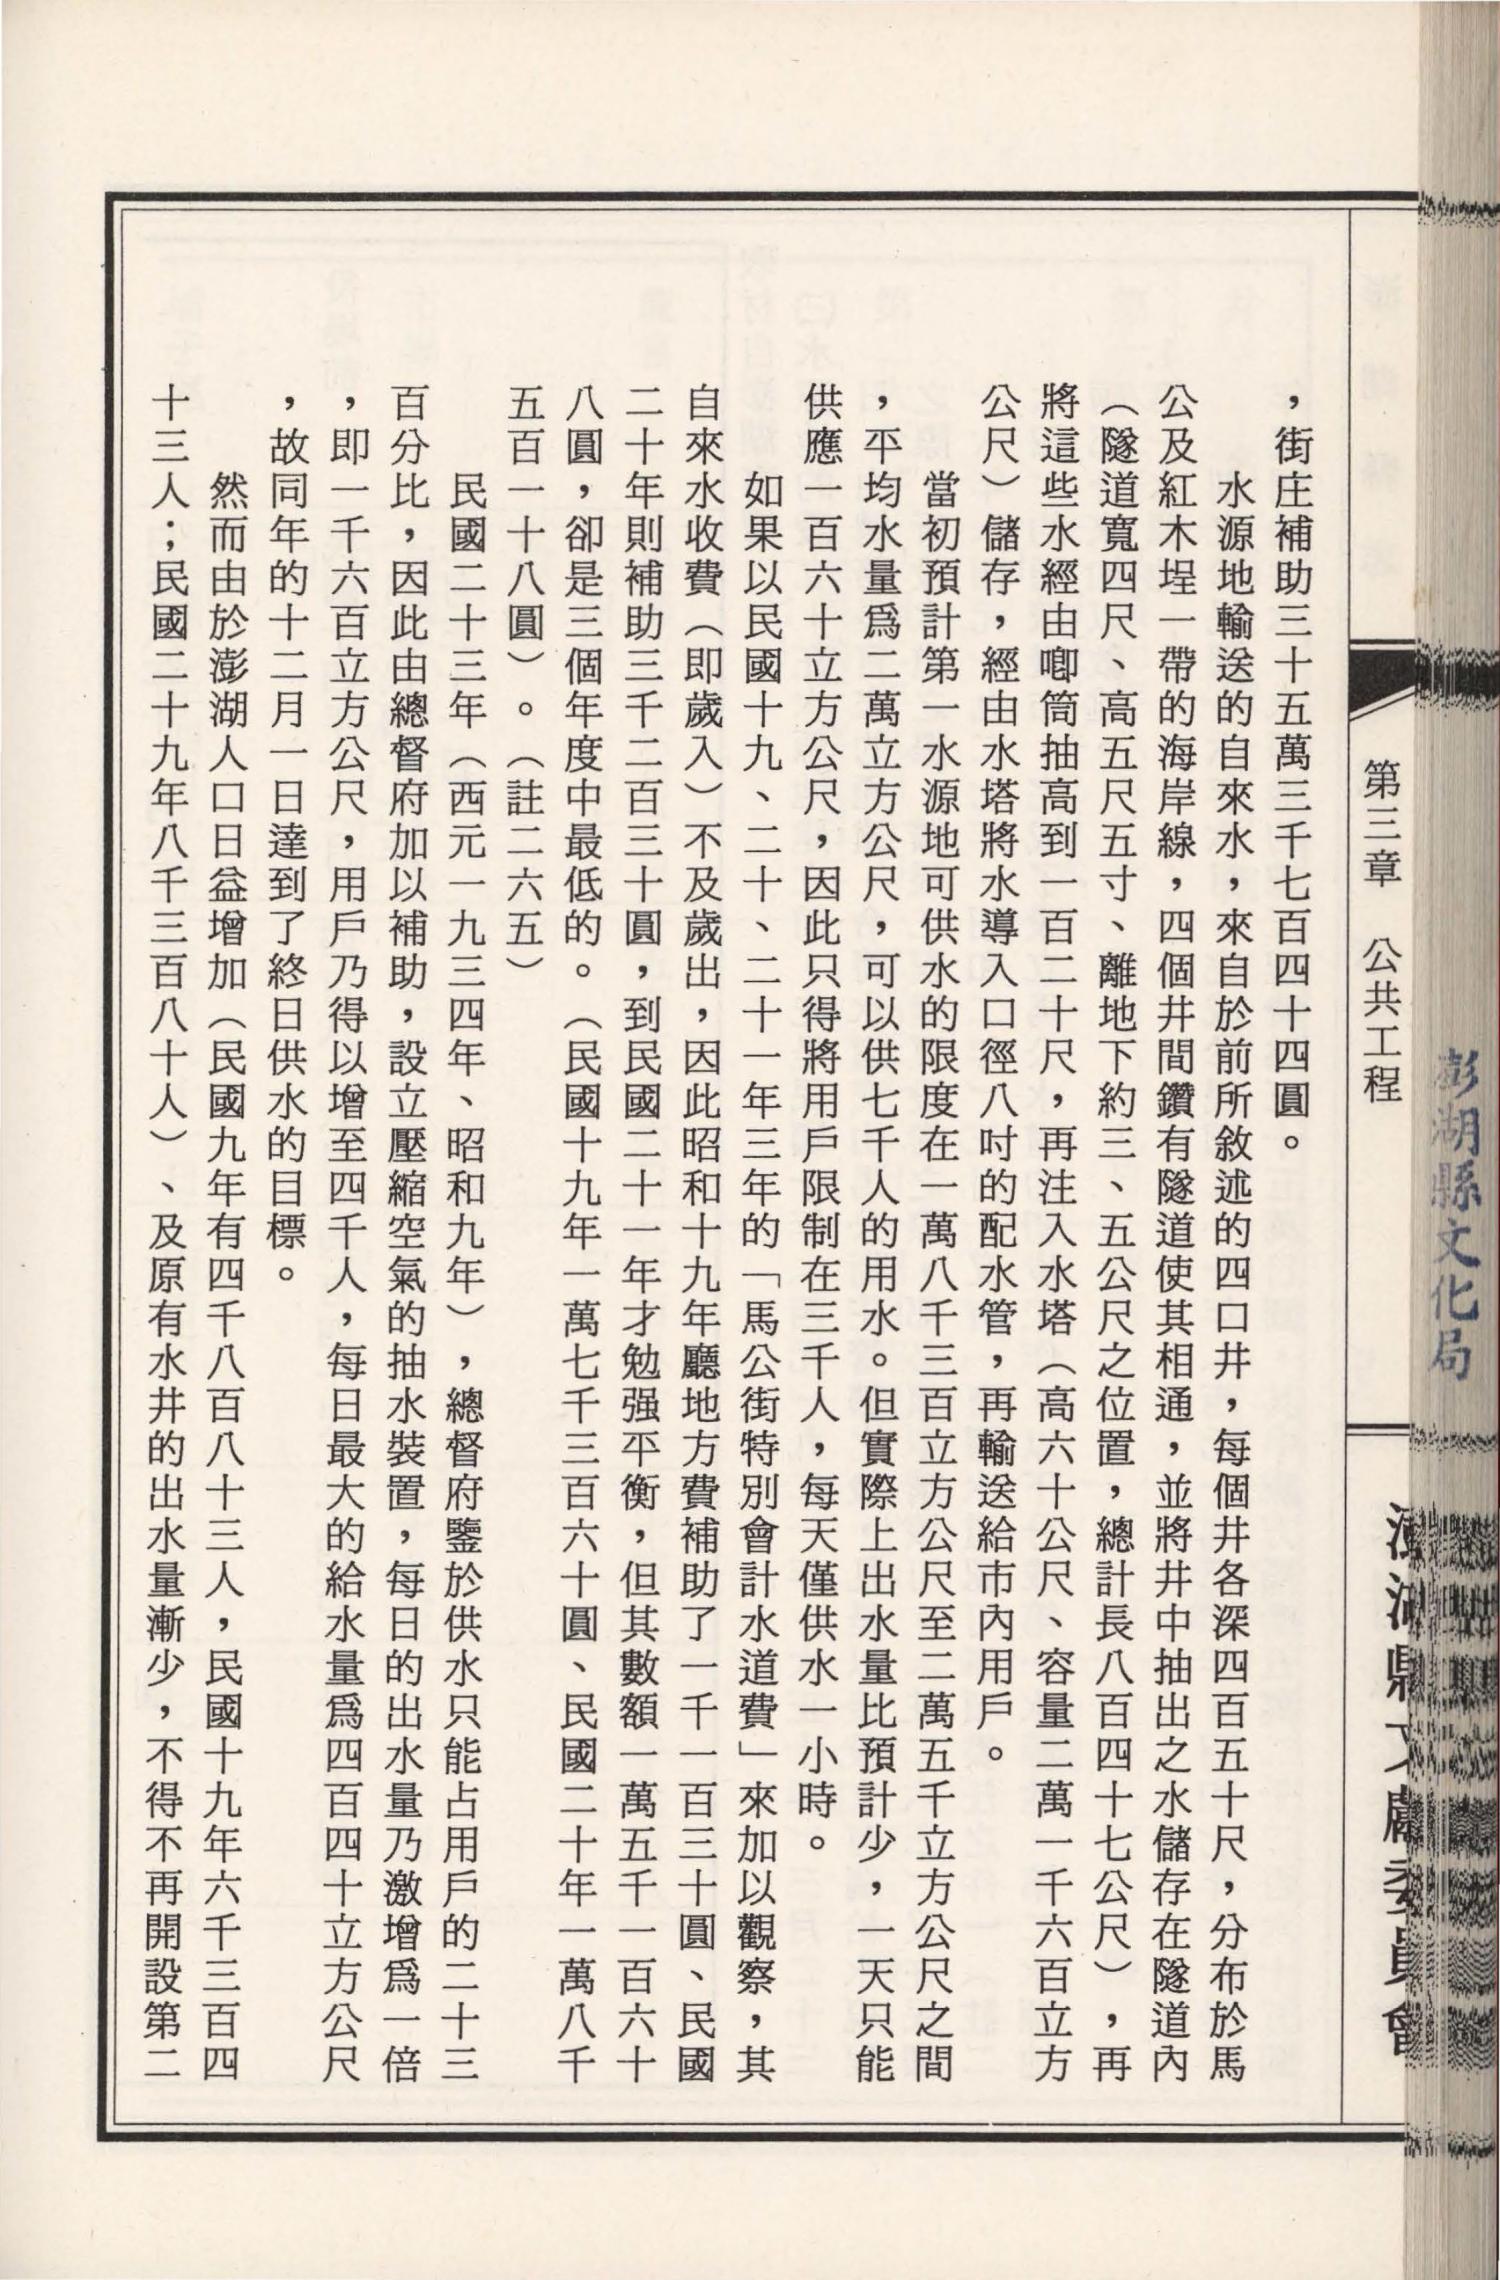 第三章　公共工程
澎湖縣文獻委員會
澎湖縣文化局
，街庄補助三十五萬三千七百四十四圓。
水源地輸送的自來水，來自於前所敘述的四口井，每個井各深四百五十尺，分布於馬
公及紅木埕一帶的海岸線，四個井間鑽有隧道使其相通，並將井中抽出之水儲存在隧道內
（隧道寬四尺、高五尺五寸、離地下約三、五公尺之位置，總計長八百四十七公尺），再
將這些水經由喞筒抽高到一百二十尺，再注入水塔（高六十公尺、容量二萬一千六百立方
公尺）儲存，經由水塔將水導入口徑八吋的配水管，再輸送給市內用戶。
當初預計第一水源地可供水的限度在一萬八千三百立方公尺至二萬五千立方公尺之間
，平均水量爲二萬立方公尺，可以供七千人的用水。但實際上出水量比預計少，一天只能
供應一百六十立方公尺，因此只得將用戶限制在三千人，每天僅供水一小時。
如果以民國十九、二十、二十一年三年的「馬公街特別會計水道費」來加以觀察，其
自來水收費（即歲入）不及歲出，因此昭和十九年廳地方費補助了一千一百三十圓、民國
二十年則補助三千二百三十圓，到民國二十一年才勉强平衡，但其數額一萬五千一百六十
八圓，卻是三個年度中最低的。（民國十九年一萬七千三百六十圓、民國二十年一萬八千
五百一十八圓）。（註二六五）
民國二十三年（西元一九三四年、昭和九年），總督府鑒於供水只能占用戶的二十三
百分比，因此由總督府加以補助，設立壓縮空氣的抽水裝置，每日的出水量乃激增爲一倍
，即一千六百立方公尺，用戶乃得以增至四千人，每日最大的給水量爲四百四十立方公尺
，故同年的十二月一日達到了終日供水的目標。
然而由於澎湖人口日益增加（民國九年有四千八百八十三人，民國十九年六千三百四
十三人；民國二十九年八千三百八十人）、及原有水井的出水量漸少，不得不再開設第二